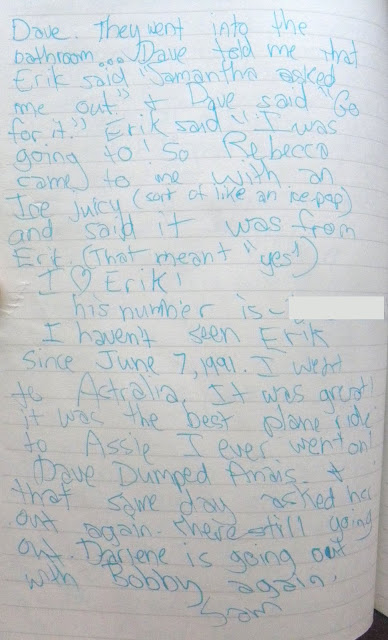 Dave. They went into the
bathroom... Dave told me that
Erik said "Samantha asked
me out" & Dave said "Go
for it" Erik said "I was
going to! So Rebecca
came to me with an
Ice Juicy (sort of like an ice-pop)
and said it was from
Erik. (That meant "yes")
I ♡ Erik!
his number is -
I haven't seen Erik
since June 7, 1991. I went
to Astralia. It was great!
it was the best plane ride
to Assie I ever went on!
Dave Dumped Anais. &
that same day asked her
out again. there still going
out. Darlene is going out
with Bobby again.
Sam